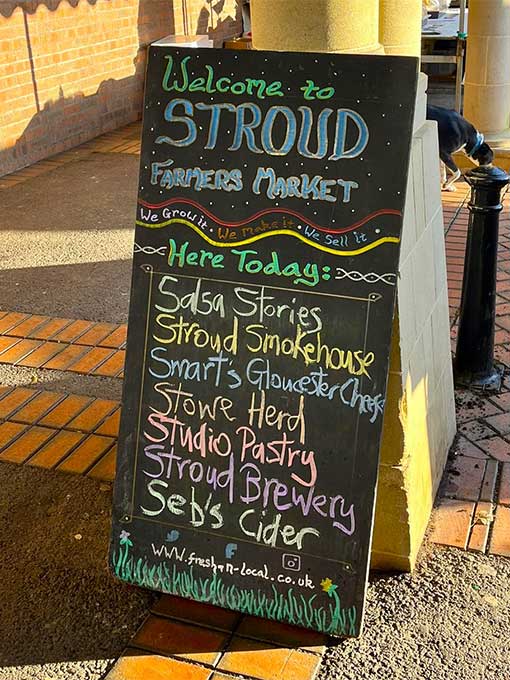 Welcome to
STROUD
FARMERS MARKET
We Grow it • We Make it • We Sell it
Here Today:
Salsa Stories
Stroud Smokehouse
Smart's Gloucester Cheese
Stowe Herd
Studio Pastry
Stroud Brewery
Seb's Cider
www.fresh-n-local.co.uk